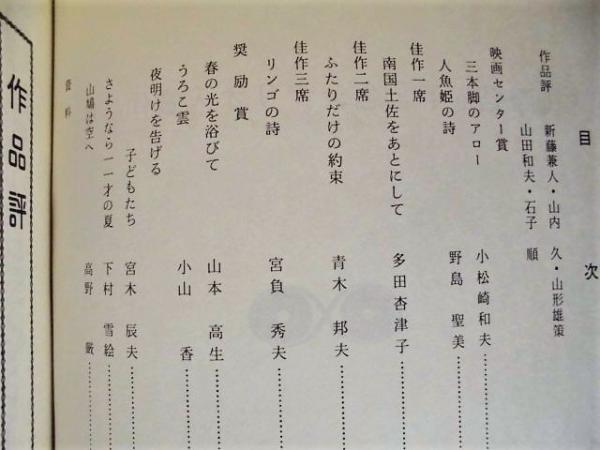 目　次
作品評　新藤兼人・山内　久・山形雄策
山田和夫・石子　順
映画センター賞
三本脚のアロー　小松崎和夫
人魚姫の詩　野島　聖美
佳作一席
南国土佐をあとにして　多田杏津子
佳作二席
ふたりだけの約束　青木　邦夫
佳作三席
リンゴの詩　宮負　秀夫
奨励賞
春の光を浴びて　山本　高生
うろこ雲　小山　香
夜明けを告げる
子どもたち　宮木　辰夫
さようなら一一才の夏　下村　雪絵
山鳩は空へ　高野　厳
資料
作品評